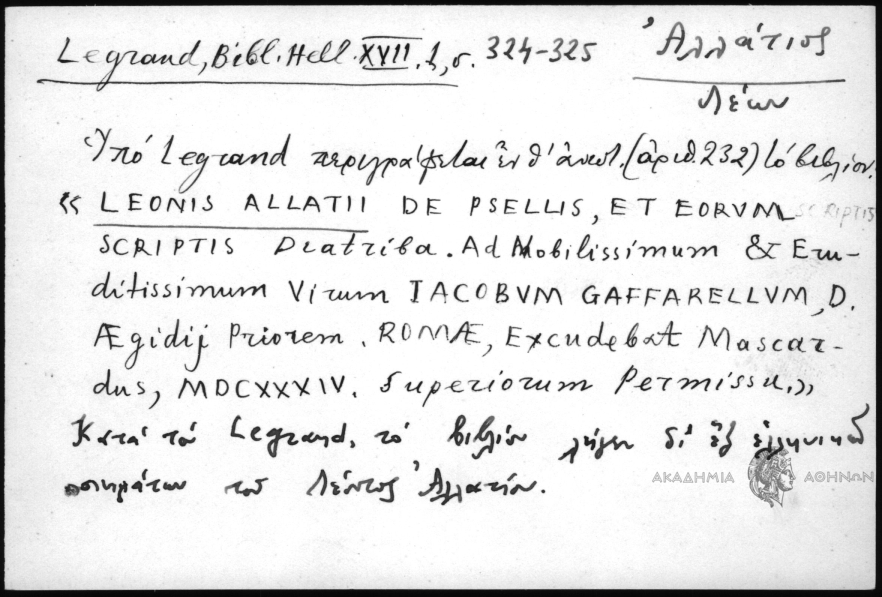 Legrand, Bibl. Hell. XVII. 1, σ. 324-325
Ἀλλάτιος
Λέων
Ὑπό Legrand περιγράφεται ἐν θ' ἀνωτ. (ἀριθ. 232) τό βιβλίον.
« LEONIS ALLATII DE PSELLIS, ET EORVM SCRIPTIS
SCRIPTIS Diatriba. Ad Nobilissimum & Eru-
ditissimum Virum IACOBVM GAFFARELLVM, D.
Ægidij Priorem. ROMÆ, Excudebat Mascar-
dus, MDCXXXIV. Superiorum Permissu.»
Κατά τόν Legrand, τό βιβλίον λήγει δι' ἓξ ἑλληνικῶν
ποιημάτων τοῦ Λέοντος Ἀλλατίου.
ΑΚΑΔΗΜΙΑ ΑΘΗΝΩΝ